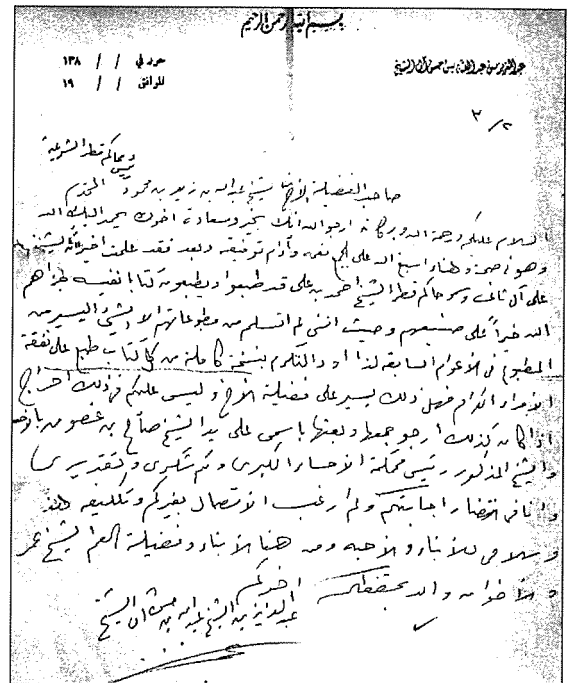 بسم الله الرحمن الرحيم
عبدالعزيز بن عبدالله بن حسن آل الشيخ
حرر في / / ١٣٨
الموافق / / ١٩
٣/٢
رئيس محاكم قطر الشرعية
صاحب الفضيلة الأخ الشيخ عبدالله بن زيد بن محمود المحترم
السلام عليكم ورحمة الله وبركاته ارجو الله انك بخير وسعادة اخوك يحمد اليك الله
وهو في صحة وهناء اسبغ الله على الجميع نعمه وأدام توفيقه وبعد فقد علمت اخيرا الشيخ
علي آل ثاني وسمو حاكم قطر الشيخ احمد بن علي قد طبعوا ويطبعون كتبا نفيسة فجزاهم
الله خيرا على صنيعهم وحيث انني لم اتسلم من مطبوعاتهم الا الشيء اليسير من
المطبوع في الأعوام السابقة لذا اود التكرم بنسخة كاملة من كل كتاب طبع على نفقة
الأمراء الكرام فهل ذلك يسير على فضيلة الأخ وليس عليكم في ذلك احراج
اذا كان كذلك ارجو جمعها وبعثها باسمي على يد الشيخ صالح بن غصون
والشيخ المذكور رئيس محكمة الاحساء الكبرى ولكم شكري وتقديري
وانا في انتظار اجابتكم ولم ارغب الاتصال بغيركم وتكليفه هذا
وسلامي للأبناء والأحبه ومن هنا الأبناء وفضيلة العم الشيخ عمر
والأخوان والله يحفظكم
اخوكم
عبدالعزيز بن الشيخ عبدالله بن حسن آل الشيخ